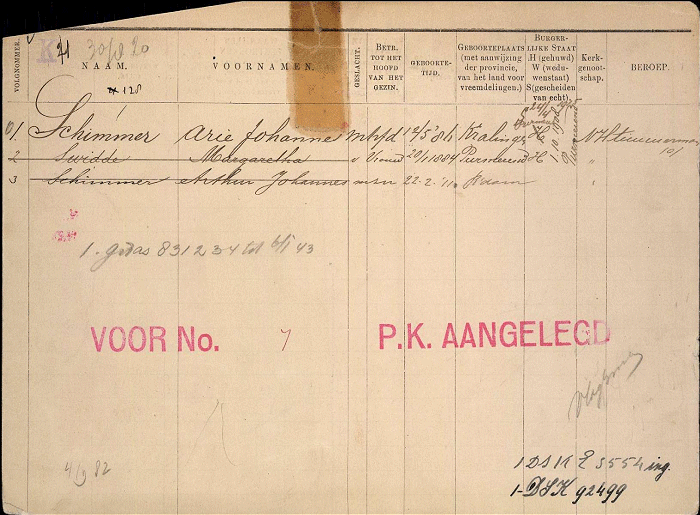 K 21 30/9 20
VOLGNOMMER. NAAM. VOORNAMEN. GESLACHT. BETR. TOT HET HOOFD VAN HET GEZIN. GEBOORTE-TIJD. GEBOORTEPLAATS (met aanwijzing der provincie, van het land voor vreemdelingen.) BURGER-LIJKE STAAT .H (gehuwd) W (wedu-wenstaat) S (gescheiden van echt). Kerk-genoot-schap. BEROEP.
* 128
1 Schimmer Arie Johannes m hfd 12/5 '86 Kralingen H NH
2 Swidde Margaretha v Vrouw 20/1 1884 H "
3 Schimmer Arthur Johannes m zn 22-2-'11 Rdam "
831234 tot 6/1 43
VOOR No. 1 P.K. AANGELEGD
4/9 82
1 DSK 2 S554 ing.
1-DSK 92499